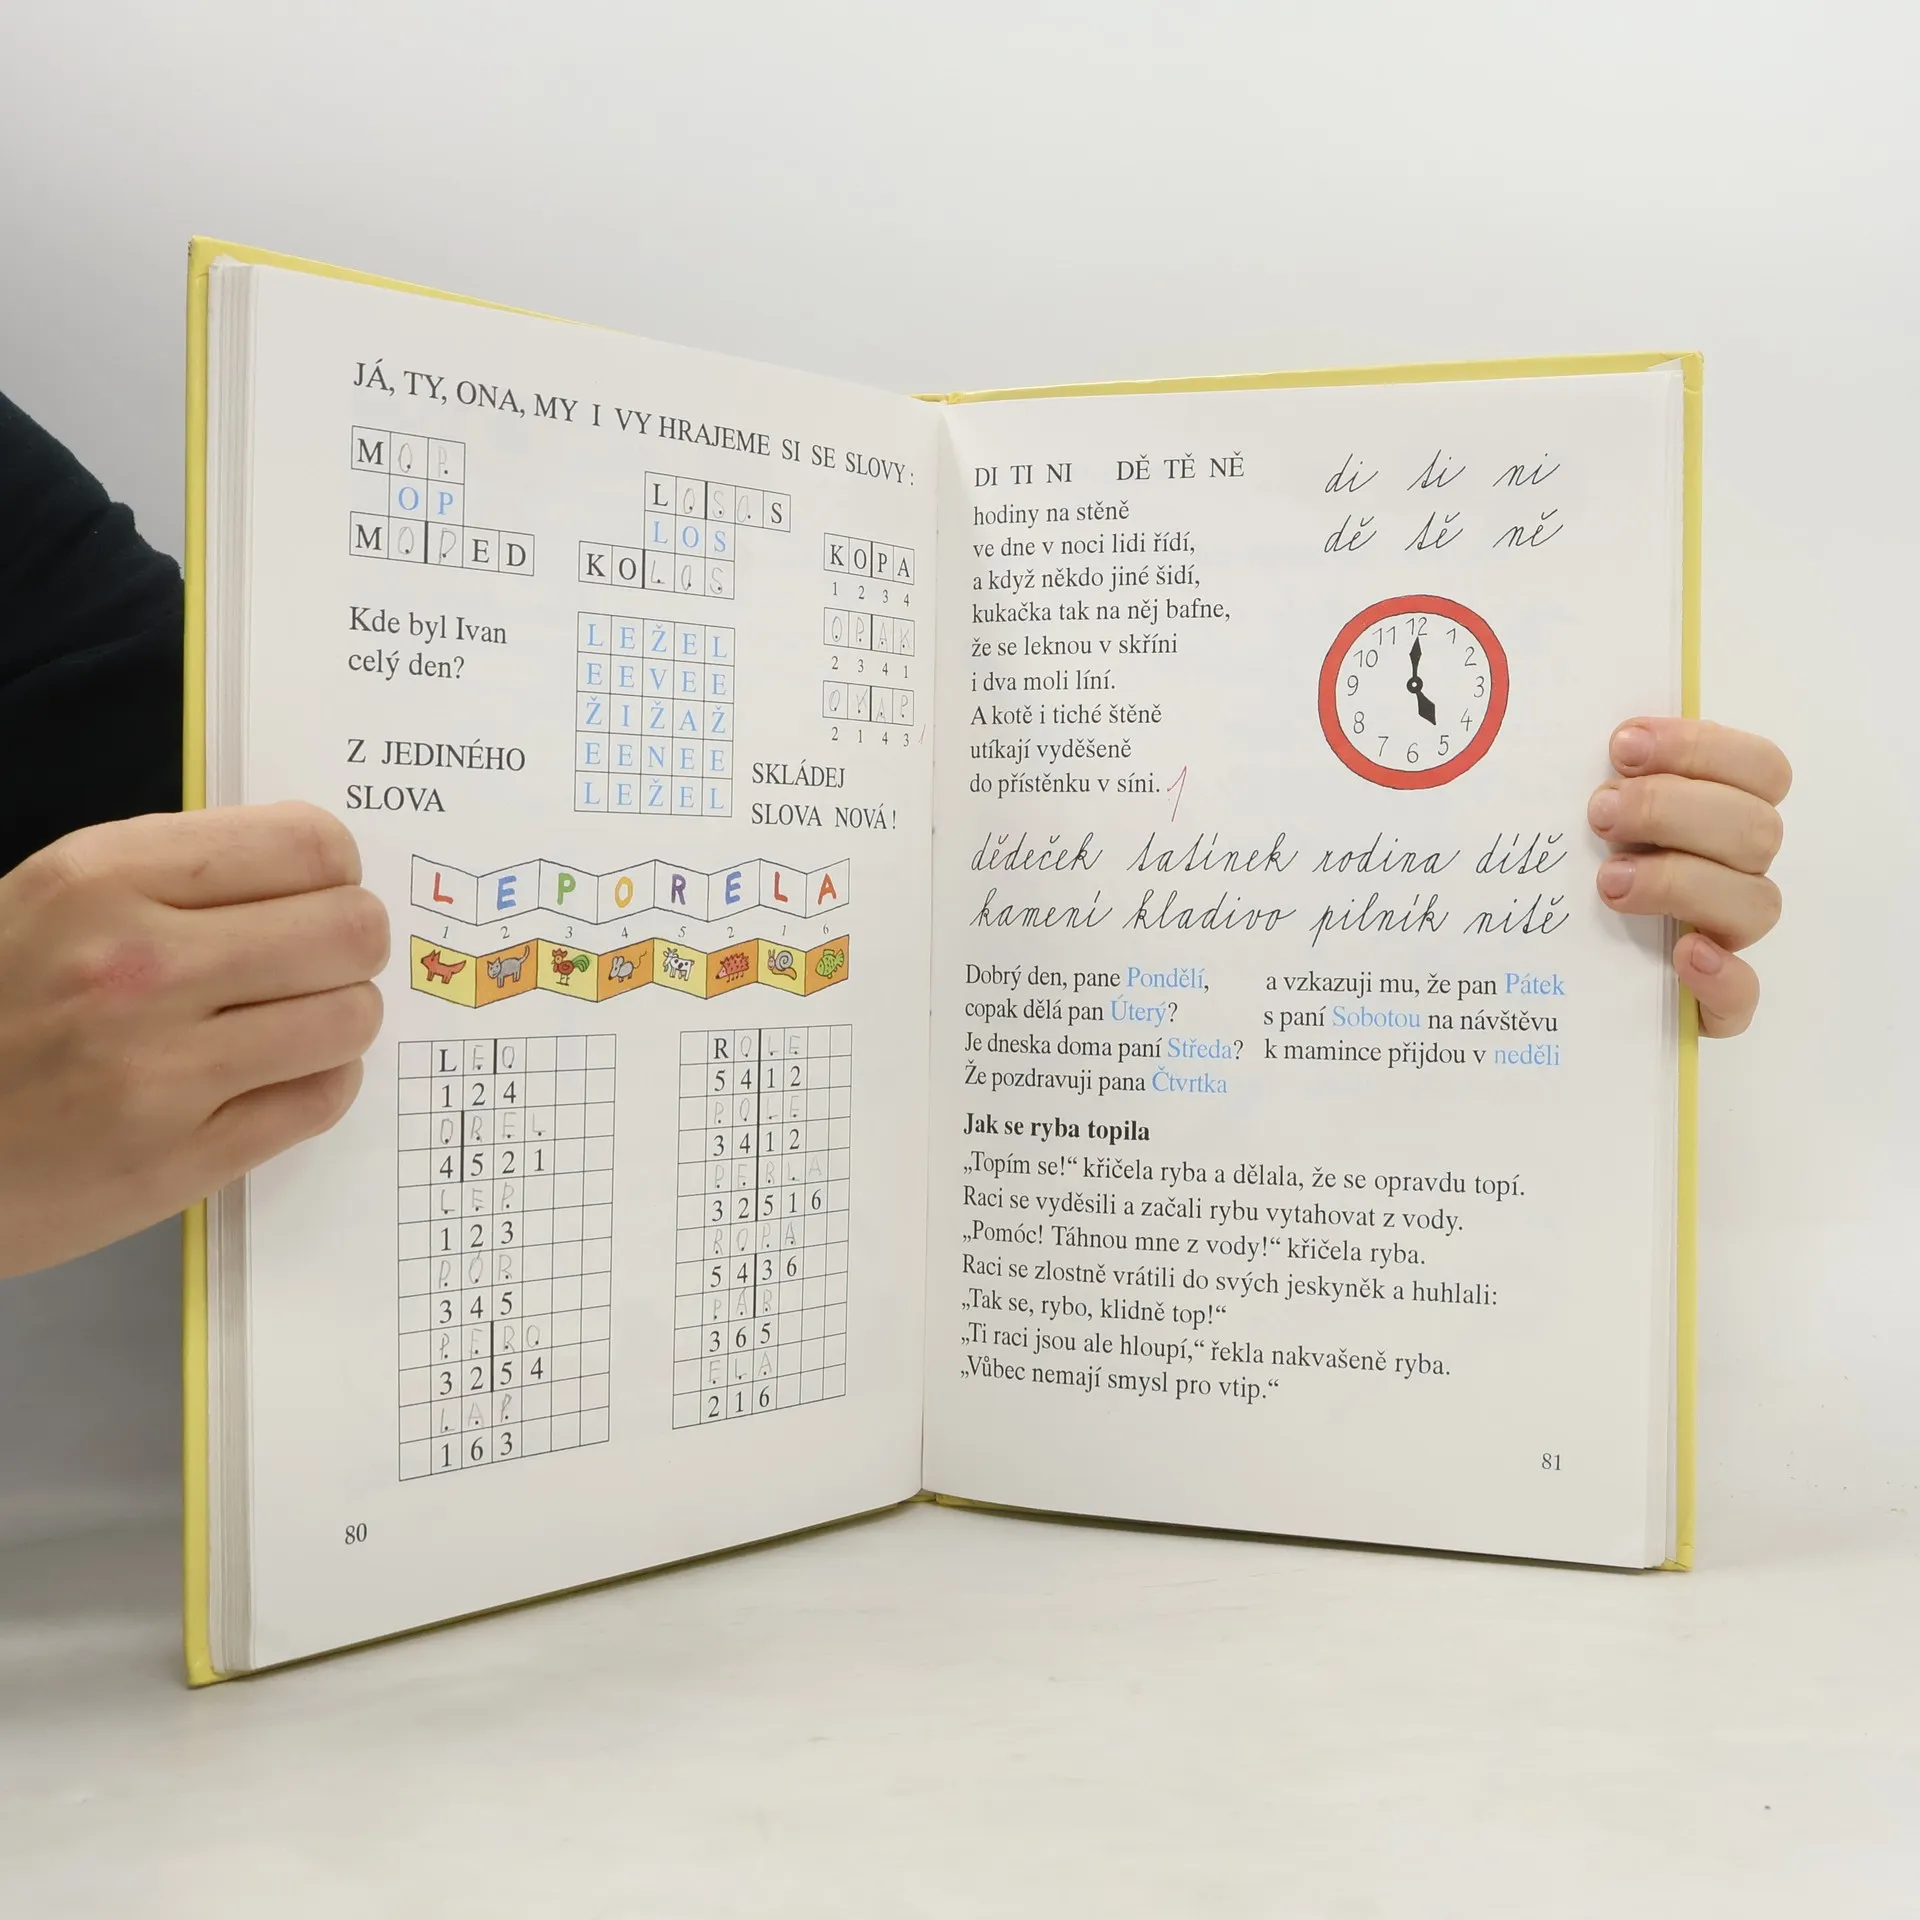 JÁ, TY, ONA, MY I VY HRAJEME SI SE SLOVY:
M O P
O P
M O P E D
L O S O S
L O S
K O L O S
K O P A
1 2 3 4
O P A K
2 3 4 1
O K A P
2 1 4 3
Kde byl Ivan
celý den?
L E Ž E L
E E V E E
Ž I Ž A Ž
E E N E E
L E Ž E L
Z JEDINÉHO
SLOVA
SKLÁDEJ
SLOVA NOVÁ!
L E P O R E L A
1 2 3 4 5 2 1 6
L E O
1 2 4
O R E L
4 5 2 1
L E P
1 2 3
P Ó R
3 4 5
P E R O
3 2 5 4
L A P
1 6 3
R O L E
5 4 1 2
P O L E
3 4 1 2
P E R L A
3 2 5 1 6
R O P A
5 4 3 6
P A R
3 6 5
E L A
2 1 6
80
DI TI NI DĚ TĚ NĚ
di ti ni
dě tě ně
hodiny na stěně
ve dne v noci lidi řídí,
a když někdo jiné šidí,
kukačka tak na něj bafne,
že se leknou v skříni
i dva moli líní.
A kotě i tiché štěně
utíkají vyděšeně
do přístěnku v síni. 1
12 1 2 3 4 5 6 7 8 9 10 11
dědeček tatínek rodina dítě
kamení kladivo pilník nitě
Dobrý den, pane Pondělí,
copak dělá pan Úterý?
Je dneska doma paní Středa?
Že pozdravuji pana Čtvrtka
a vzkazuji mu, že pan Pátek
s paní Sobotou na návštěvu
k mamince přijdou v neděli
Jak se ryba topila
„Topím se!“ křičela ryba a dělala, že se opravdu topí.
Raci se vyděsili a začali rybu vytahovat z vody.
„Pomóc! Táhnou mne z vody!“ křičela ryba.
Raci se zlostně vrátili do svých jeskyněk a huhlali:
„Tak se, rybo, klidně top!“
„Ti raci jsou ale hloupí,“ řekla nakvašeně ryba.
„Vůbec nemají smysl pro vtip.“
81